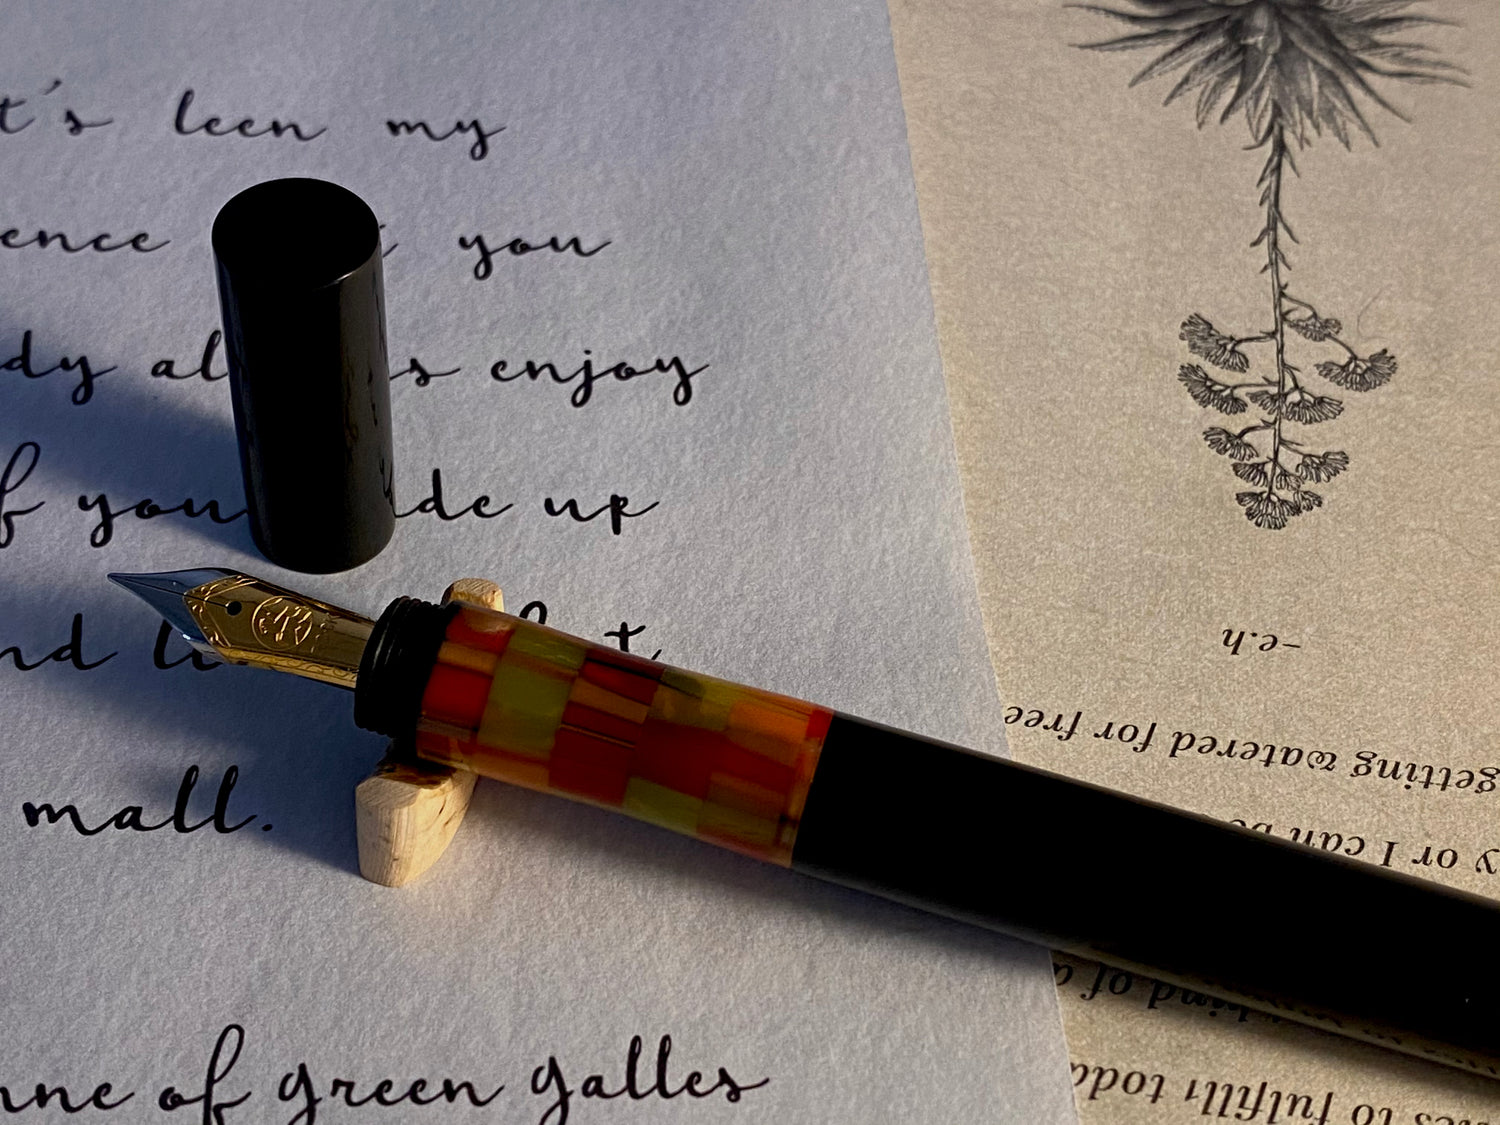 t's been my
ence you
dy al s enjoy
f you de up
nd t
mall.
nne of green gables
-e.h
getting watered for free
y or I can be
kind of a
es to fulfill toda